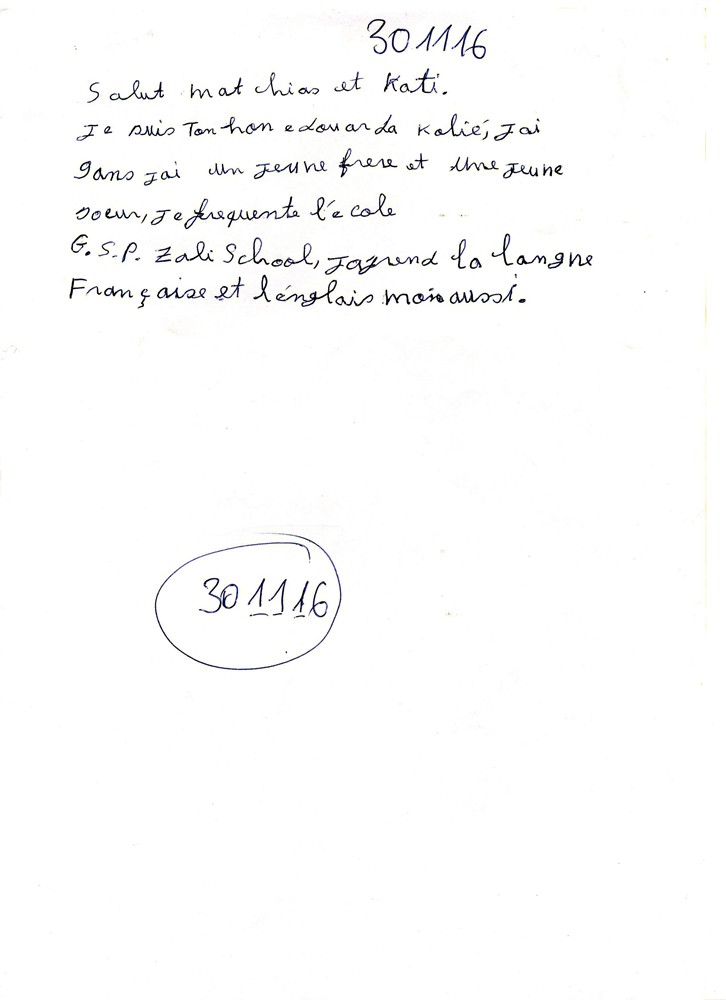 301116
Salut mat chias et Kati.
Je suis Tonhon edouarda Kolié, Jai
9ans jai un jeune frere et une jeune
soeur, je frequente l'école
G.S.P. Zali School, japrend la langne
Française et l'énglais mois aussi.
301116